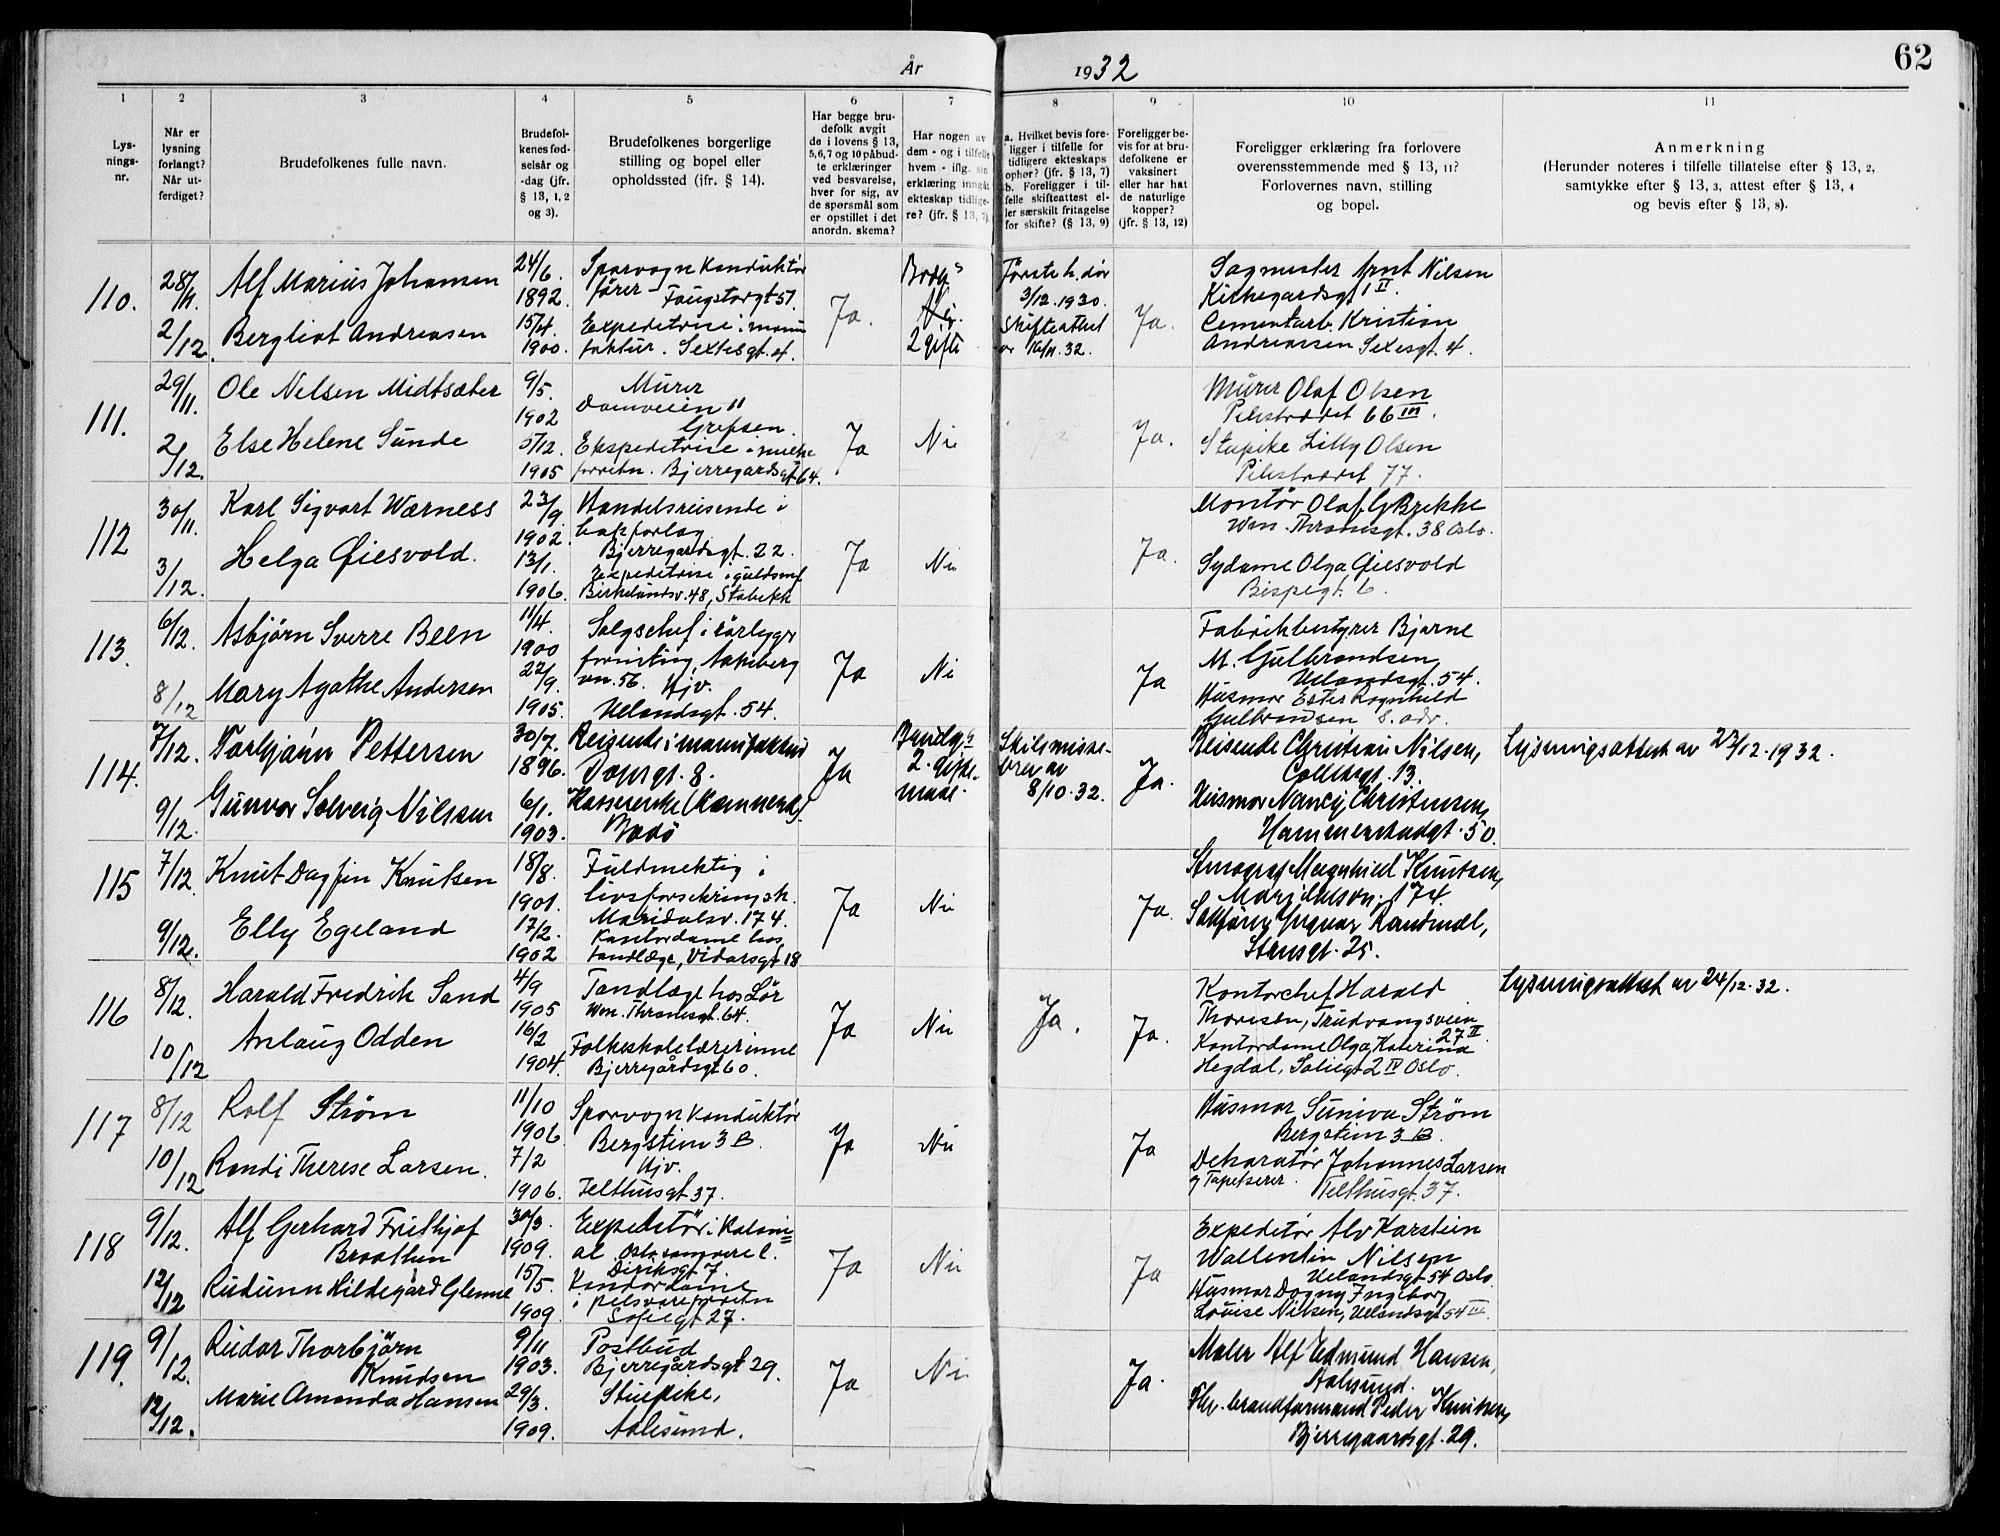 År 1932
62
1
2
3
4
5
6
7
8
9
10
11
Lys-
nings-
nr.
Når er
lysning
forlangt?
Når ut-
ferdiget?
Brudefolkenes fulle navn.
Brudefol-
kenes fød-
selsår og
-dag (jfr.
§ 13, 1, 2
og 3).
Brudefolkenes borgerlige
stilling og bopel eller
opholdssted (jfr. § 14).
Har begge bru-
defolk avgit
de i lovens § 13,
5,6,7 og 10 påbud-
te erklæringer
ved besvarelse,
hver for sig, av
de spørsmål som
er opstillet i det
anordn. skema?
Har nogen av
dem - og i tilfelle
hvem - iflg. sin
erklæring inngåt
ekteskap tidlige-
re? (jfr. § 13, 7).
a. Hvilket bevis fore-
ligger i tilfelle for
tidligere ekteskaps
ophør? (jfr. § 13, 7)
b. Foreligger i til-
felle skifteattest el-
ler særskilt fritagelse
for skifte? (§ 13, 9)
Foreligger be-
vis for at bru-
defolkene er
vaksinert
eller har hat
de naturlige
kopper?
(jfr. § 13, 12)
Foreligger erklæring fra forlovere
overensstemmende med § 13, 11?
Forlovernes navn, stilling
og bopel.
Anmerkning
(Herunder noteres i tilfelle tillatelse efter § 13, 2,
samtykke efter § 13, 3, attest efter § 13, 4
og bevis efter § 13, 8).
110.
28/11
2/12.
Alf Marius Johansen
Bergliot Andreasen
24/6.
1892.
15/4.
1900.
Sporvognkonduktør
Faugstorgt 51.
Expeditrise i manu
faktur. Sextesgt. 4.
Ja.
2 gifte
Første h. dør
3/12.1930.
Skifteattest
av 16/11.32.
Ja.
Sagmester Arnt Nilsen
Kirkegardsgt 1 II.
Cementarb. Kristian
Andreassen Sexesgt. 4.
111.
29/11.
2/12.
Ole Nilsen Midtsæter
Else Helene Sunde
9/5.
1902
5/12.
1905
Murer
Damveien 11
Grefsen.
Ekspeditrise i melke
forretn. Bjerregardsgt 64.
Ja
Nei
Ja.
Murer Olaf Olsen
Pilestrædet 66 III.
Stupike Lilly Olsen
Pilestrædet 77.
112
30/11.
3/12.
Karl Sigvart Wærness
Helga Giesvold.
23/9.
1902.
13/1.
1906.
Handelsreisende i
bokforlag
Bjerregardsgt. 22.
Expeditrise i guldsmf.
Birkelandsv. 48, Stabekk
Ja
Nei
Ja.
Montør Olaf G Brekke
Wm. Thranesgt. 38 Oslo.
Sydame Olga Giesvold
Bispegt. 6.
113.
6/12.
8/12
Asbjørn Sverre Been
Mary Agathe Andersen
11/4.
1900
22/9.
1905.
Salgschef i
forretning, Aakeberg
vn. 56. Hjv.
Uelandsgt. 54.
Ja
Nei
Ja
Fabrikbestyrer Bjarne
M. Gulbrandsen,
Uelandsgt. 54.
Husmor Ester Ragnhild
Gulbrandsen S. adr.
114.
7/12.
9/12.
Torbjørn Pettersen
Gunvor Solveig Nilssen
30/7.
1896.
6/1.
1903.
Reisende i manufaktur
Dopsgt. 8.
Bodø
Ja
2. gifte-
maal.
Skilsmisse-
brev av
8/10.32.
Ja.
Reisende Christian Nilsen,
Collettsgt. 13.
Husmor Nancy Christensen,
Hammerstadgt. 50.
Lysningsattest av 27/12.1932.
115
7/12.
9/12.
Knut Dagfin Knutsen
Elly Egeland
18/8.
1901.
17/2.
1902
Fuldmektig i
livsforsekringssk.
Maridalsv. 174.
Kontordame hos
tandlæge, Vidarsgt 18
Ja
Nei
Ja.
Stenograf Magnhild Knutsen,
Maridalsvn. 174.
Sakfører Yngvar Randindal,
Stensgt. 25.
116
8/12.
10/12
Harald Fredrik Sand
Anlaug Odden
4/9
1905
16/2
1904.
Tandlæge hos Lør
Wm. Thranesgt. 64.
Folkeskolelærerinne
Bjerregårdsgt 60.
Ja
Nei
Ja.
Ja.
Kontorchef Harald
Thoresen, Trudvangsveien
27 II
Kontordame Olga Katerina
Hegdal, Sofiegt 2 IV Oslo.
Lysningsattest av 24/12.32.
117
8/12
10/12
Rolf Strøm
Randi Therese Larsen.
11/10
1906.
7/2
1906.
Sporvognkonduktør
Bergstien 3 B.
Hjv.
Telthusgt 37.
Ja
Nei
Ja
Husmor Suniva Strøm
Bergstien 3 B.
Dekoratør Johannes Larsen
og Tapetserer. Telthusgt. 37.
118
9/12.
12/12
Alf Gerhard Frithjof
Braathen
Rudunn Hildegård Glenne
30/3.
1909.
15/5.
1909.
Expeditør i Koloni=
al Oslo samvirel.
Diriksgt 7
Kontordame
i pelsvareforretn
Sofiegt 27.
Ja
Nei
Ja
Expeditør Alv Karstein
Wallentin Nilsen
Uelandsgt 54 Oslo
Husmor Dagny Ingeborg
Louise Nilsen, Uelandsgt 54 III.
119.
9/12.
12/12.
Reidar Thorbjörn
Knudsen
Marie Amanda Hansen
9/11
1903.
29/3.
1909.
Postbud
Bjerregårdsgt 29.
Stuepike,
Aalesund.
Ja
Nei
Ja.
Maler Alf Edmund Hansen,
Aalesund.
Fhv. brandformand Peder Knutsen,
Bjerregaardsgt. 29.